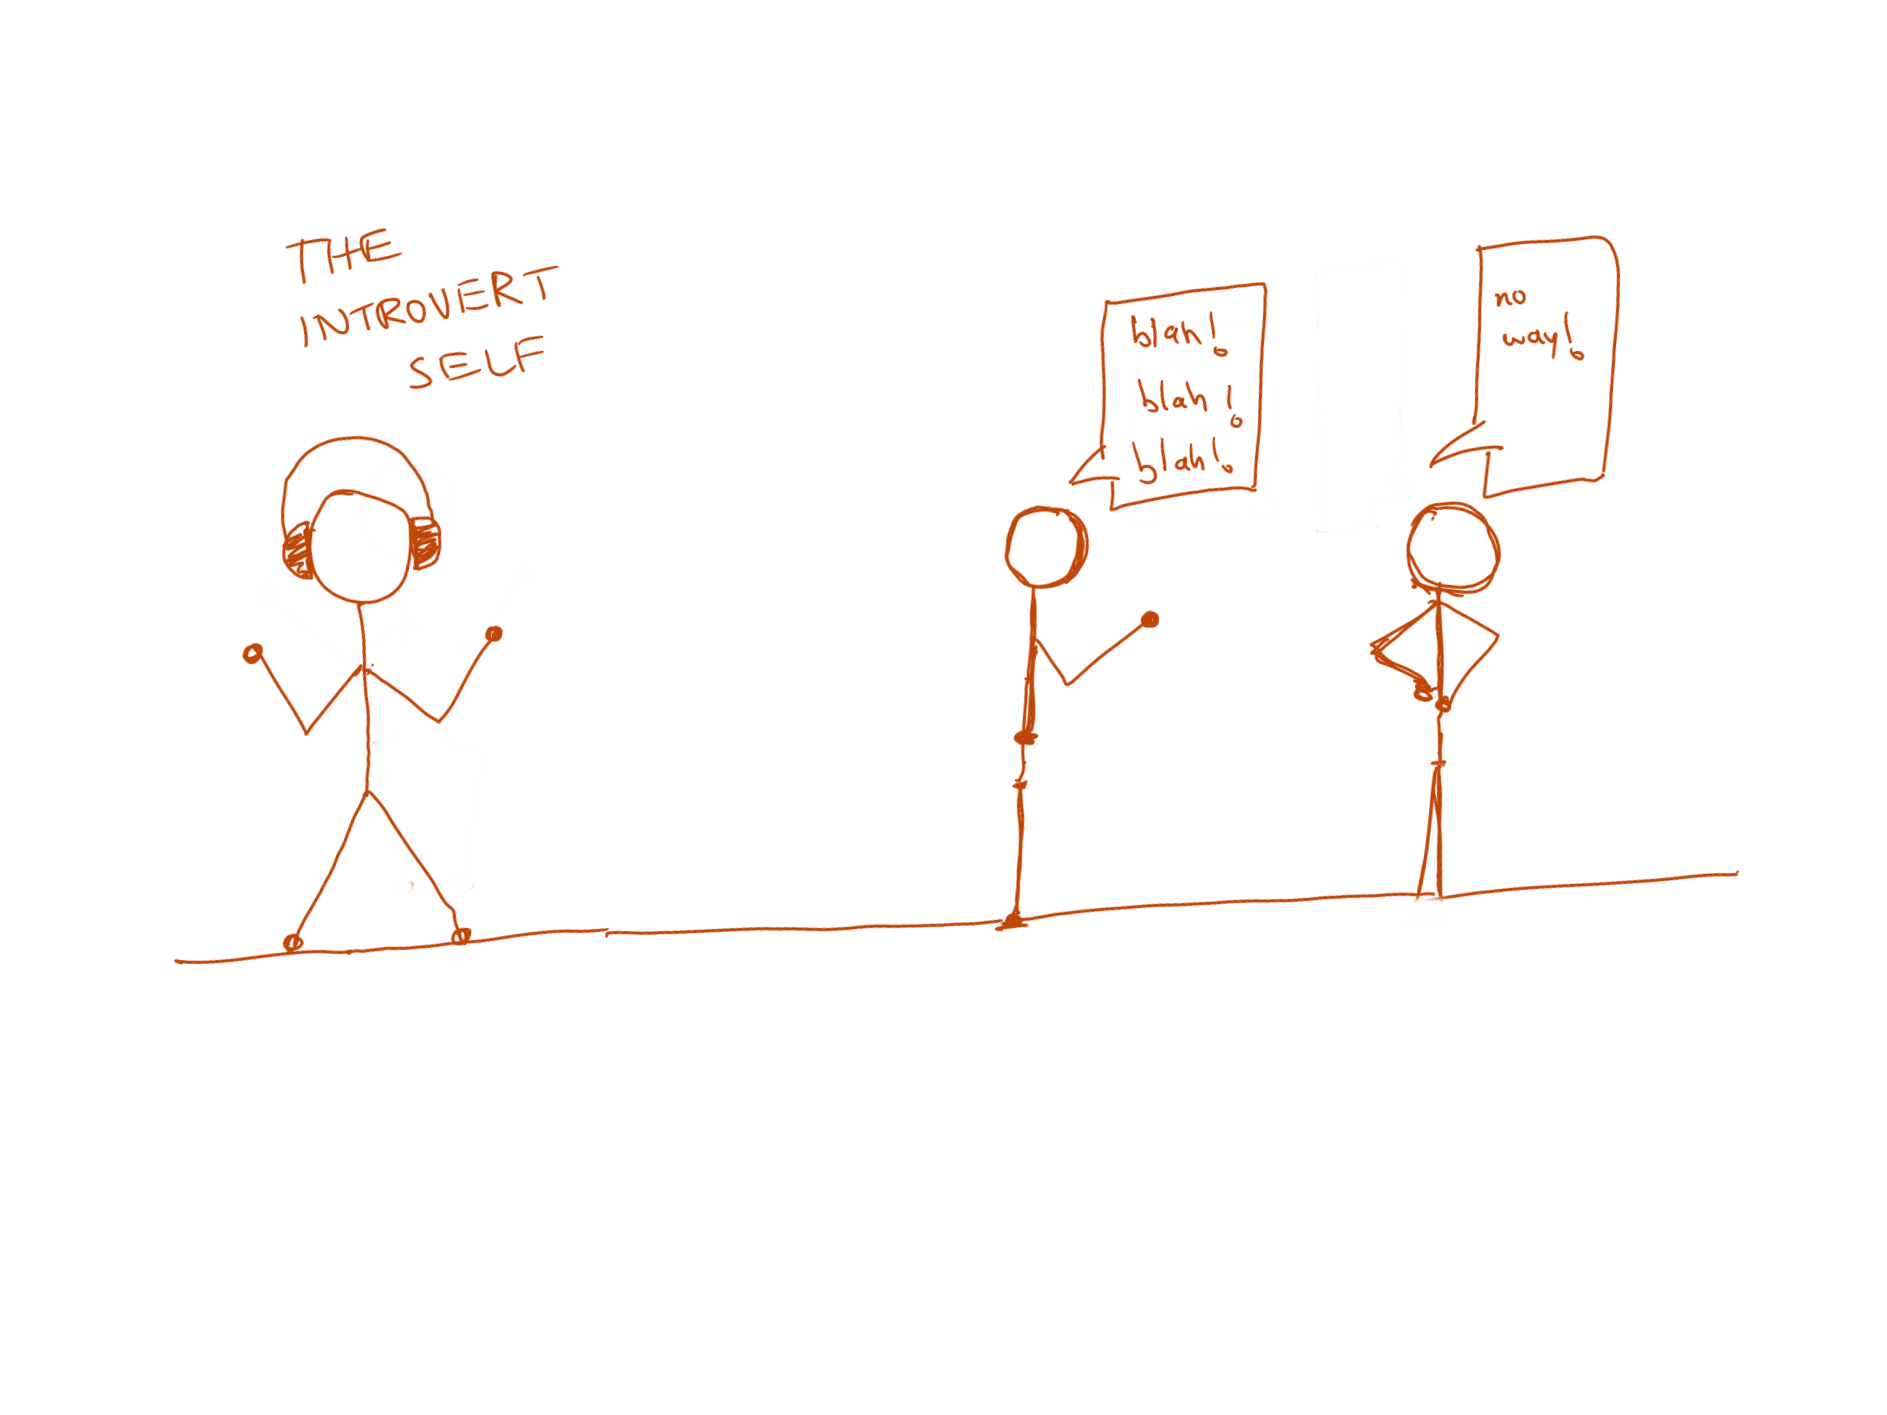 THE
INTROVERT
SELF
blah!
blah!
blah!
no
way!